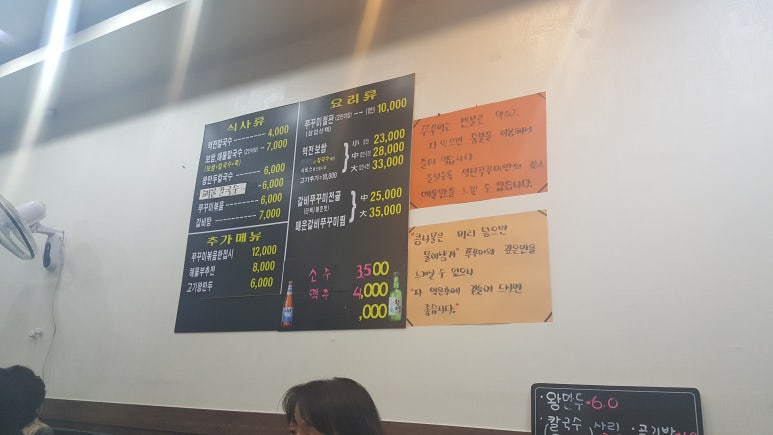 식사류
역전칼국수 -------- 4,000
보쌈,해물칼국수(2인이상) -- 7,000
(보쌈+칼국수+죽)
왕만두칼국수 ------ 6,000
칼국수 -6,000
쭈꾸미볶음 ------ 6,000
갈비탕 -------- 7,000
추가메뉴
쭈꾸미볶음한접시 12,000
해물부추전 8,000
고기왕만두 6,000
요리류
쭈꾸미철판(2인이상) --- (1인) 10,000
(삼겹선택)
역전 보쌈
小 23,000
中 28,000
大 33,000
고기추가=10,000
갈비쭈꾸미전골
매운갈비쭈꾸미찜
中 25,000
大 35,000
소주 3,500
맥주 4,000
,000
쭈꾸미는 센불로 익히고
다 익으면 중불을 이용해서
드시면 됩니다
매운맛을 느낄 수 있습니다.
"콩나물은 미리 넣으면
물이생겨" 쭈꾸미의 깊은맛을
느끼실 수 없으니
"다 익은후에 곁들여 드시면
좋습니다."
·왕만두 6.0
·칼국수 사리 ·공기밥